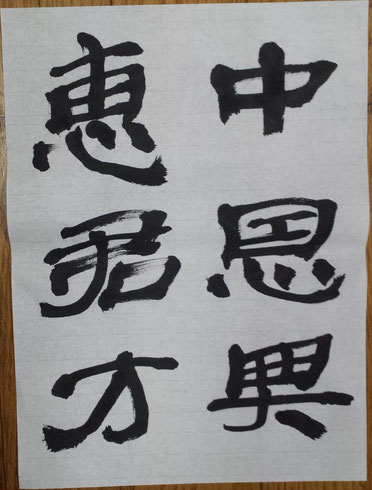 中恩興
惠君方